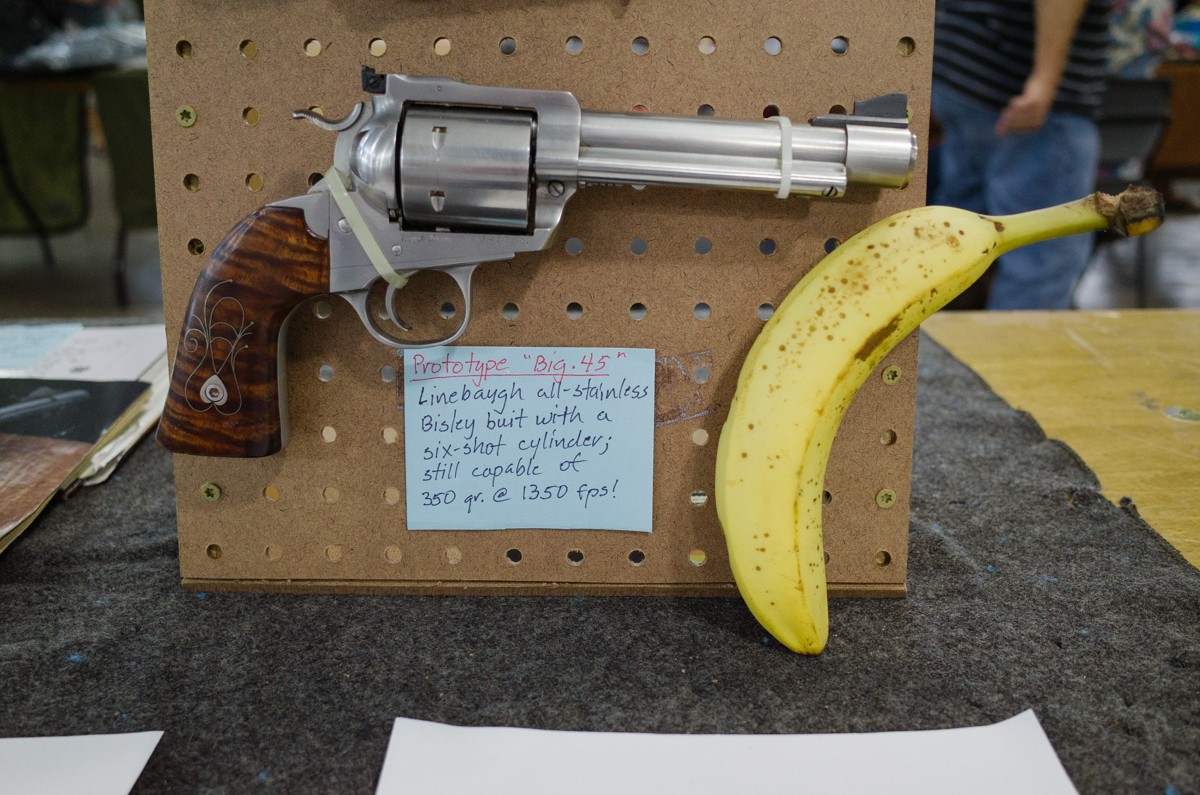 Prototype "Big .45"
Linebaugh all-stainless
Bisley buit with a
six-shot cylinder;
still capable of
350 gr. @ 1350 fps!